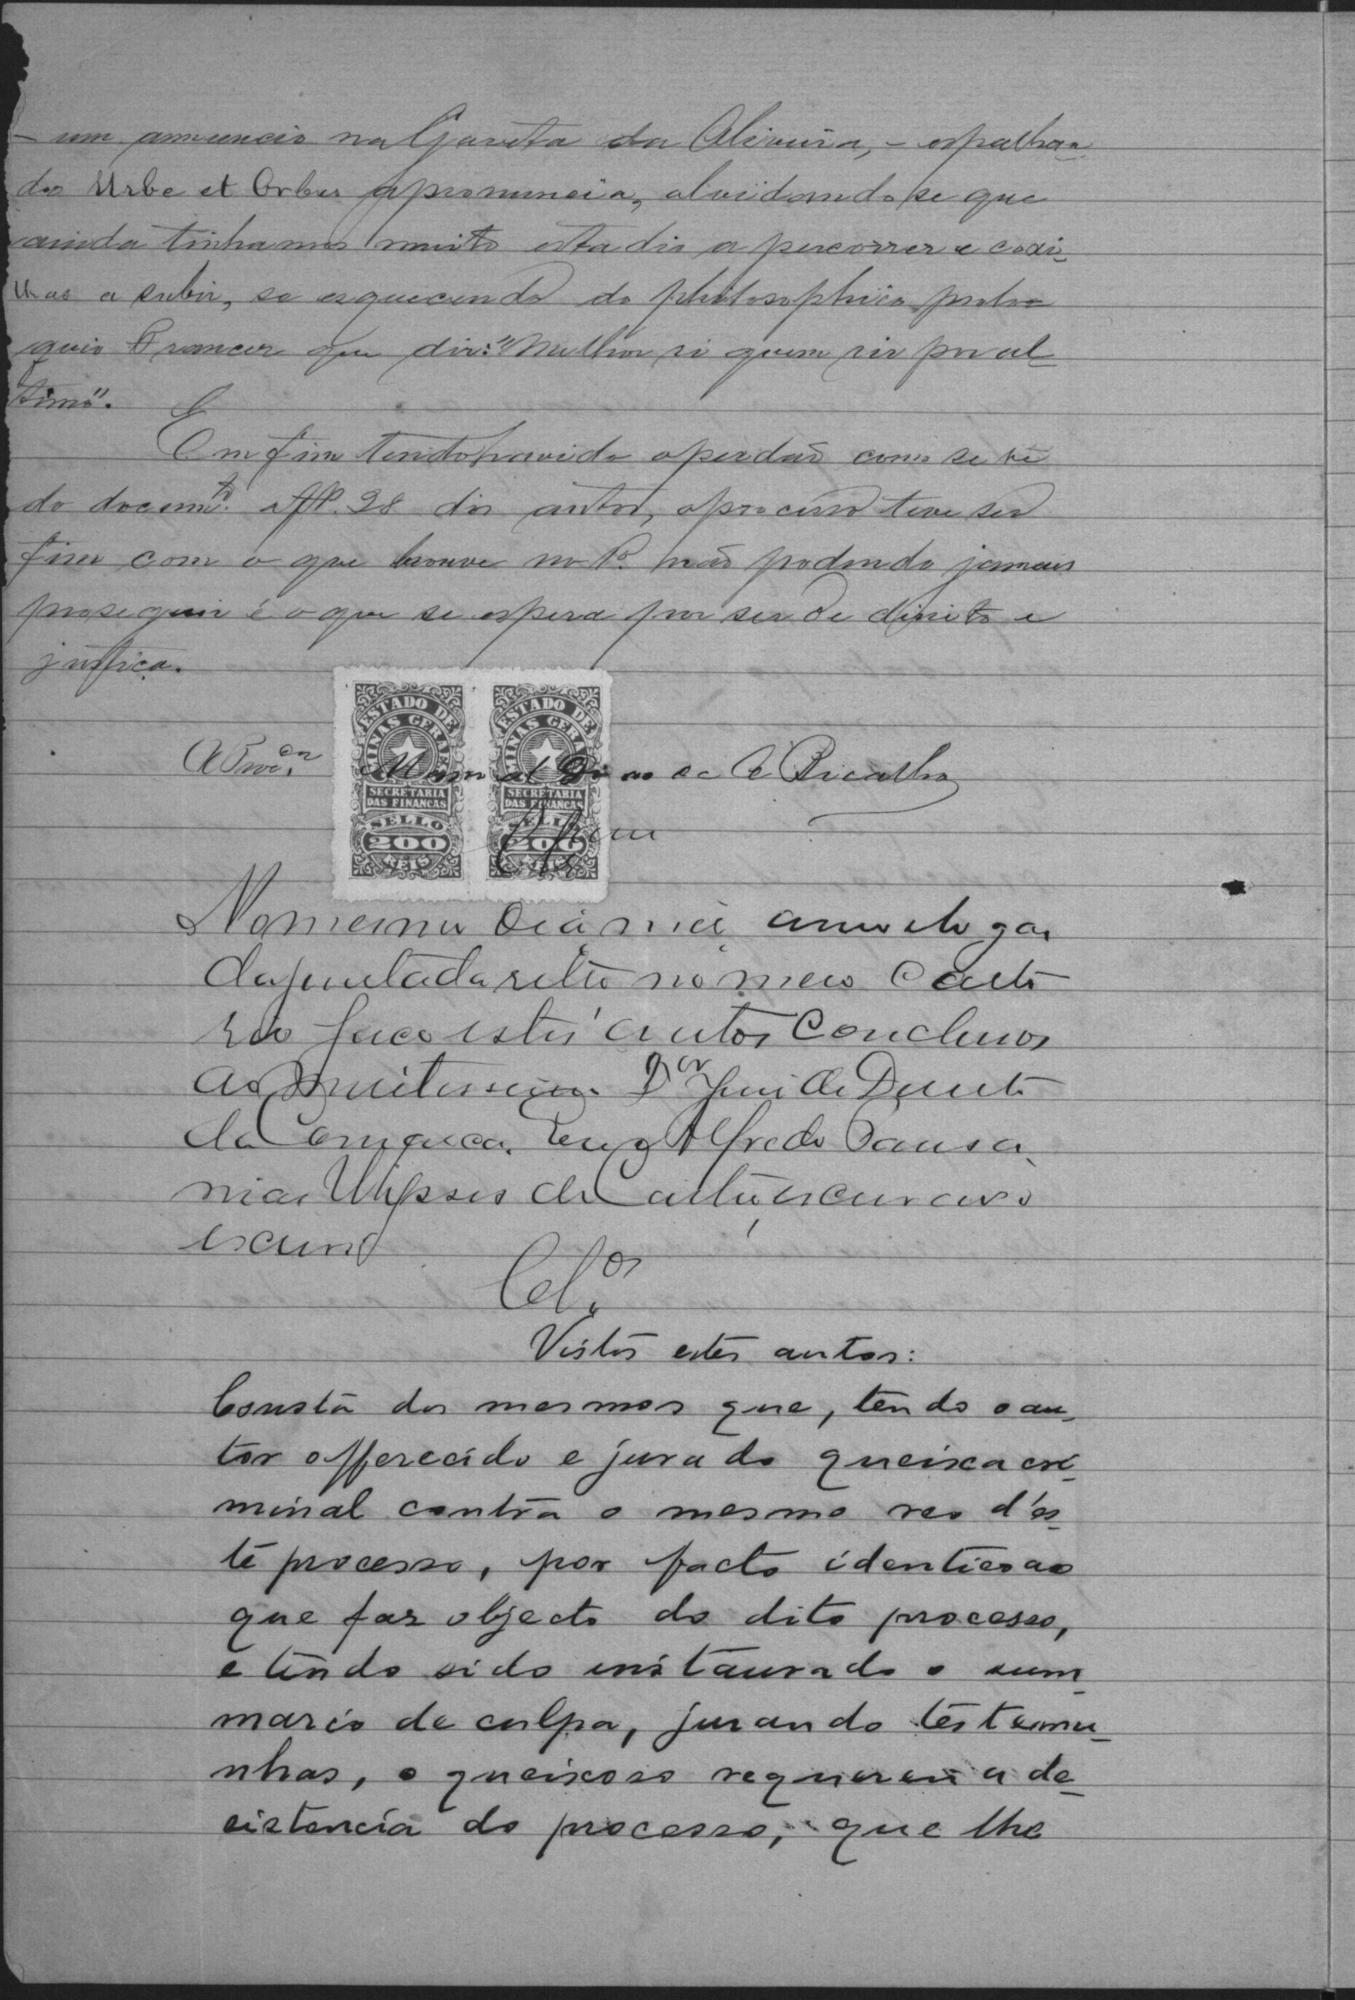 - um annuncio na Gazeta da Oliveira, - espalhan
do Urbe et Orbes a pronuncia, olvidando se que
ainda tinhamos muito estadio a percorrer e coxi-
lhas a subir, se esquecendo do philosophico prolo
quio Francez que diz: "Melhor ri quem rir por ul-
timo".
Em fim tendo havido o perdão como se vê
do docum.to a fl. 28 dos autos, o processo teve seu
fim com o que houve no 1º não podendo jamais
proseguir é o que se espera por ser de direito e
justiça.
ESTADO DE MINAS GERAES
SECRETARIA DAS FINANÇAS
SELLO
200
REIS
ESTADO DE MINAS GERAES
SECRETARIA DAS FINANÇAS
SELLO
200
REIS
O Proc.or Manoel Dias de Bicalho
No mesmo dia mez anno e logar
da juntada retro no meu Carto
rio faço estes autos Conclusos
ao Meritissimo Dor Juiz de Direito
da Comarca. Eu Alfredo Pausa
nias Ulysses de Castro, escrivão
escrevi
Cl.os
Vistos estes autos:
Consta dos mesmos que, tendo o au-
tor offerecido e jurado queixa cri-
minal contra o mesmo reo d'es-
te processo, por facto identico ao
que faz objecto do dito processo,
e tendo sido instaurado o sum-
mario de culpa, jurando testemu-
nhas, o queixoso requereu a de-
sistencia do processo, que lhe